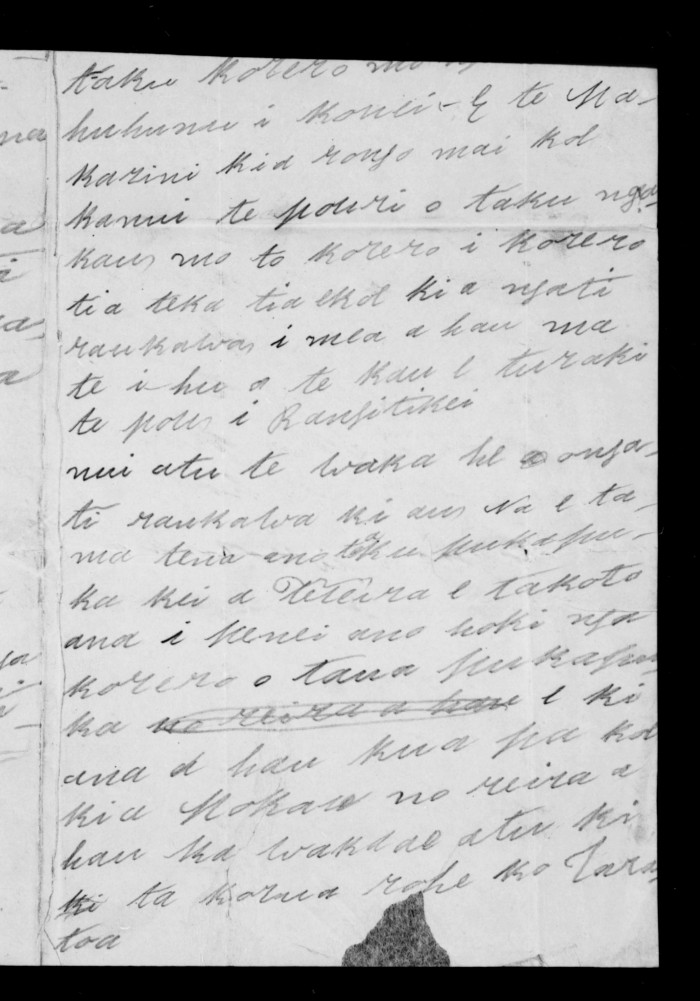 taku korero mo
huhunu i konei - E te Ma-
karini kia rongo mai koe
kanui te pouri o taku nga-
kau mo to korero i korero
tia teka tia e koe ki a ngati
raukawa i mea a hau ma
te i hu o te kau e turaki
te pou i Rangitikei
nui atu te waka he a onga-
ti raukawa ki au Na e ta-
ma tena ano toku pukapu-
ka kei a Teteira e takoto
ana i penei ano hoki nga
korero o taua pukapu
ka no reira a hau e ki
ana a hau kua pa koe
kia Pokae no reira a
hau ka wakaae atu ki
ki ta korua rohe ko Tara
toa